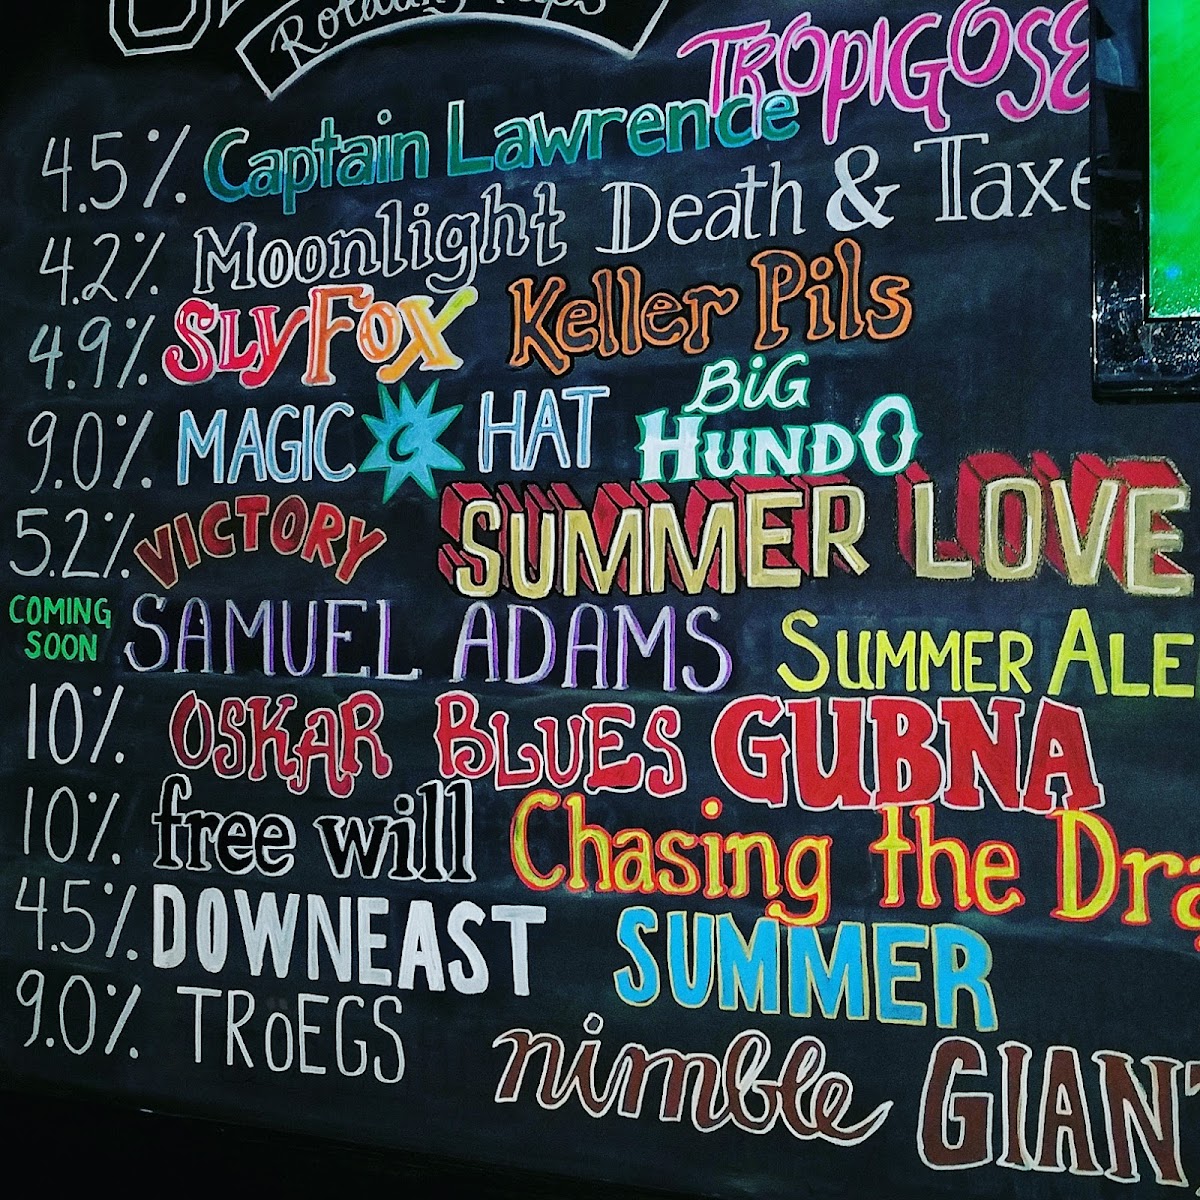 Rotating Taps
4.5% Captain Lawrence TROPIGOSE
4.2% Moonlight Death & Taxe
4.9% SLY FOX Keller Pils
9.0% MAGIC HAT BiG HUNDO
5.2% VICTORY SUMMER LOVE
COMING SOON SAMUEL ADAMS SUMMER ALE
10% OSKAR BLUES GUBNA
10% free will Chasing the Dra
4.5% DOWNEAST SUMMER
9.0% TRöEGS nimble GIANT